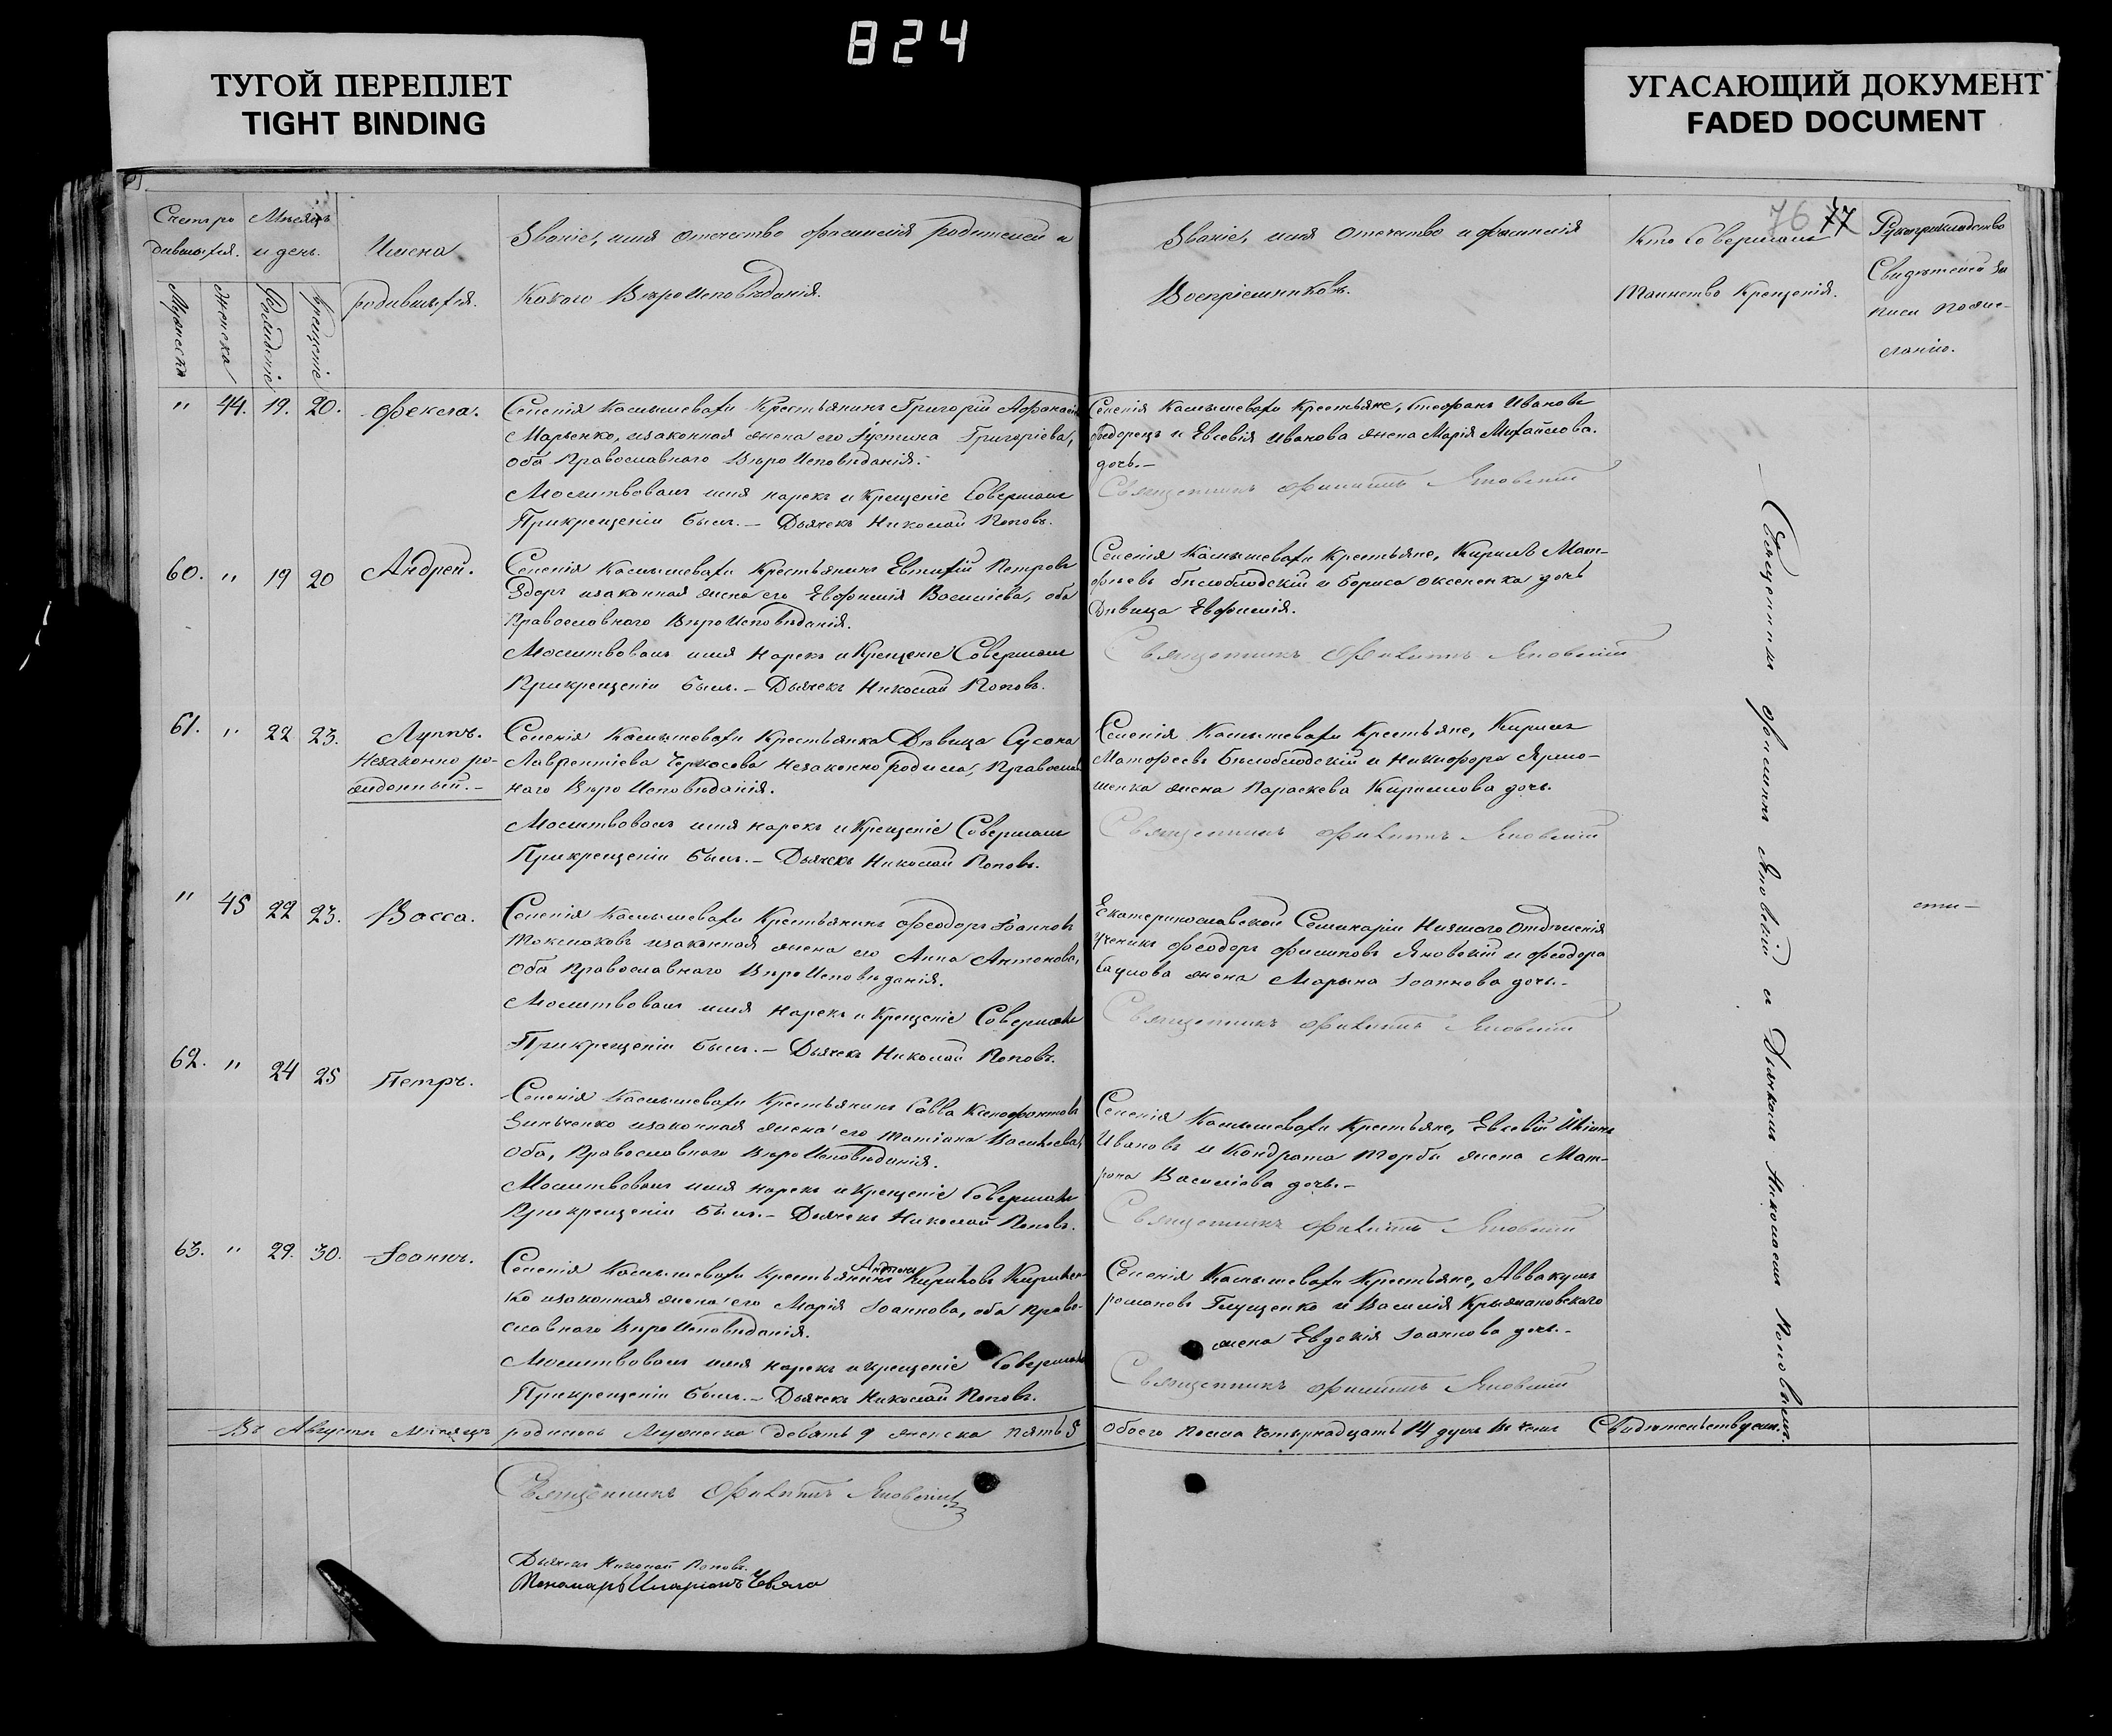 824
ТУГОЙ ПЕРЕПЛЕТ
TIGHT BINDING
УГАСАЮЩИЙ ДОКУМЕНТ
FADED DOCUMENT
76 77
Счетъ ро
дившихся.
Мѣсяцъ
и день.
Имена
родившихся.
Званіе, имя отечество фамилія родителей и
Какого Вѣроисповѣданія.
Званіе, имя отечество и фамилія
Воспріемниковъ.
Кто Совершалъ
Таинство Крещенія.
Рукоприкладство
Свидѣтелей за
писи по же-
ланію.
Мужеска
Женска
Рожденіе
Крещеніе
" 44. 19. 20. Фекла.
Селенія Камышевахи Крестьянинъ Григорій Афанасіевъ
Марченко, изаконная жена его Іустина Григоріева,
оба Православнаго Вѣроисповѣданія.
Молитвовалъ имя нарекъ и Крещеніе Совершалъ
Прикрещеніи былъ. – Дьячекъ Николай Поповъ.
Селенія Камышевахи Крестьяне, Стефанъ Ивановъ
Федорецъ и Евсевія Иванова жена Марія Михайлова.
дочь. –
Священникъ Филиппъ Яновскій
60. " 19 20 Андрей.
Селенія Камышевахи Крестьянинъ Евтихій Петровъ
изаконная жена его Евфимія Василіева, оба
Православнаго Вѣроисповѣданія.
Молитвовалъ имя нарекъ и Крещеніе Совершалъ
Прикрещеніи былъ. – Дьячекъ Николай Поповъ.
Селенія Камышевахи Крестьяне, Кирилъ Мат-
фѣевъ Бѣлоблюдскій и Бориса Оксененка дочь
Дѣвица Евфимія.
Священникъ Филиппъ Яновскій
61. " 22 23. Луппъ.
Незаконно ро-
жденный. –
Селенія Камышевахи Крестьянка Дѣвица Сусана
Лаврентіева Черкасова незаконно родила, Православ
наго Вѣроисповѣданія.
Молитвовалъ имя нарекъ и Крещеніе Совершалъ
Прикрещеніи былъ. – Дьячекъ Николай Поповъ.
Селенія Камышевахи Крестьяне, Кирилъ
Матфеевъ Бѣлоблюдскій и Никифора Ярмо-
шенка жена Параскева Кирилова дочь.
Священникъ Филиппъ Яновскій
" 45 22 23. Васса.
Селенія Камышевахи Крестьянинъ Феодоръ Іоанновъ
Токмаковъ изаконная жена его Анна Антонова,
оба Православнаго Вѣроисповѣданія.
Молитвовалъ имя нарекъ и Крещеніе Совершалъ
Прикрещеніи былъ. – Дьячекъ Николай Поповъ.
Екатеринославской Семинаріи Низшаго Отдѣленія
Ученикъ Феодоръ Филиповъ Яновскій и Феодора
жена Марѳна Іоаннова дочь. –
Священникъ Филиппъ Яновскій
62. " 24 25 Петръ.
Селенія Камышевахи Крестьянинъ Савва Ксенофонтовъ
Зинченко изаконная жена его Татіана Василіева,
оба, Православнаго Вѣроисповѣданія.
Молитвовалъ имя нарекъ и Крещеніе Совершалъ
Прикрещеніи былъ. – Дьячекъ Николай Поповъ.
Селенія Камышевахи Крестьяне, Евсевій
Ивановъ и Кондрата Торбы жена Мат-
рона Василіева дочь. –
Священникъ Филиппъ Яновскій
63. " 29. 30. Іоаннъ.
Селенія Камышевахи Крестьянинъ Антонъ Кириловъ Кирилен-
ко изаконная жена его Марія Іоаннова, оба Право-
славнаго Вѣроисповѣданія.
Молитвовалъ имя нарекъ и крещеніе Совершалъ
Прикрещеніи былъ. – Дьячекъ Николай Поповъ.
Селенія Камышевахи Крестьяне, Аввакумъ
романовъ Глущенко и Василія Крыжановскаго
жена Евдокія Іоаннова дочь. –
Священникъ Филиппъ Яновскій
Священникъ Филиппъ Яновскій и Дьячкомъ Николаемъ Поповымъ.
Въ Августѣ мѣсяцѣ родилось Мужеска девять 9 женска пять 5 обоего пола четырнадцать 14 душъ въ чемъ Свидѣтельствуемъ.
Священникъ Филиппъ Яновскій
Дьячекъ Николай Поповъ.
Пономарь Иларіонъ